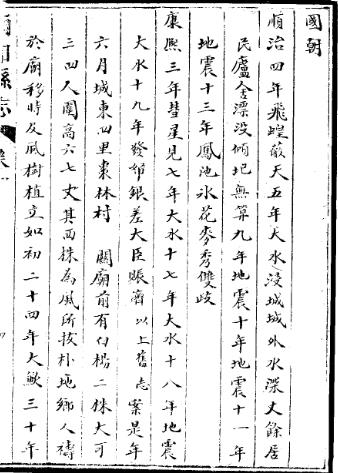 國朝
順治四年飛蝗蔽天五年大水浸城城外水深丈餘居
民廬舍漂没傾圮無算九年地震十年地震十一年
地震十三年鳳池氷花麥秀雙歧
康熙三年彗星見七年大水十七年大水十八年地震
大水十九年發帑銀差大臣賑濟以上舊志案是年
六月城東四里棗林村 關廟前有白楊二株大可
三四人圍高六七丈其西株為風所拔朴地鄉人禱
於廟移時反風樹植立如初二十四年大歉三十年
縣志